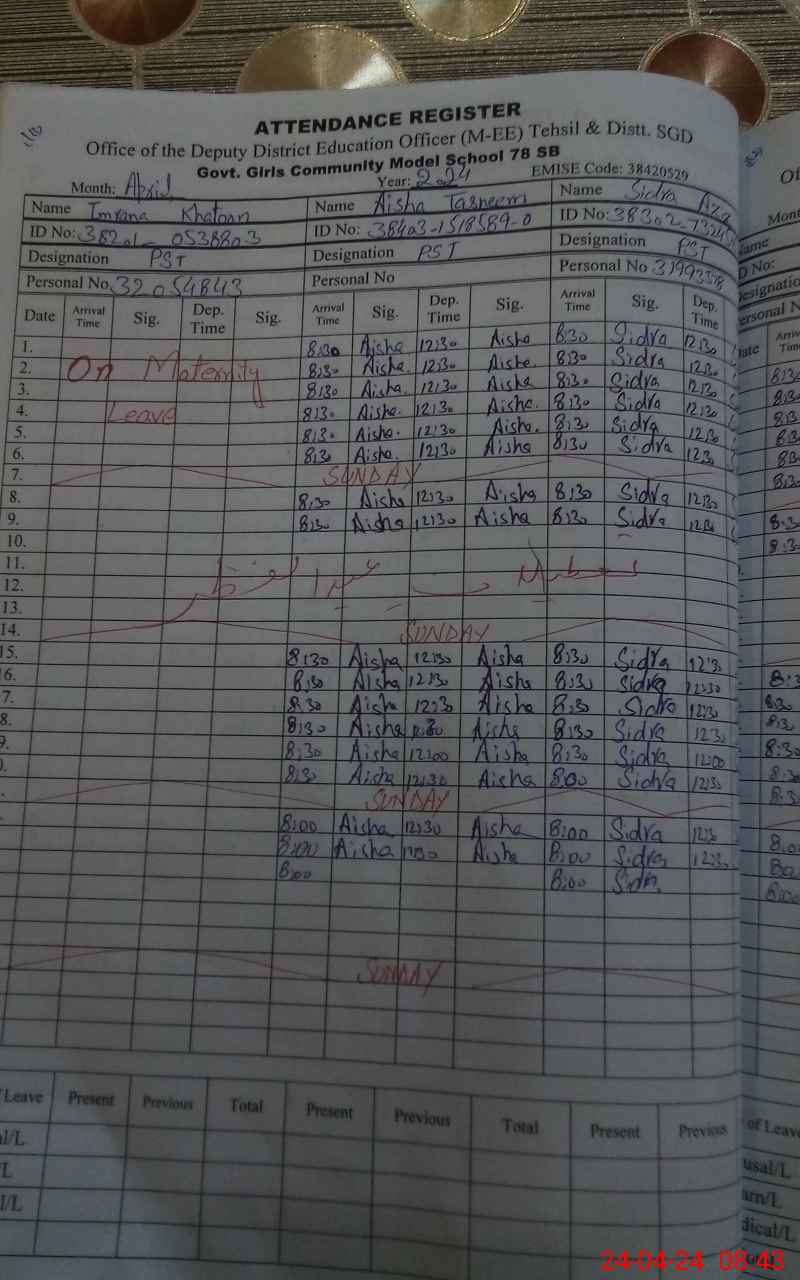 ATTENDANCE REGISTER
Office of the Deputy District Education Officer (M-EE) Tehsil & Distt. SGD
Govt. Girls Community Model School 78 SB
Month: April Year: 2024 EMISE Code: 38420529
Name Imrana Khatoon Name Aisha Tasneem Name Sidra
ID No: 38201-0538803 ID No: 38403-1518589-0 ID No: 38302-
Designation PST Designation PST Designation PST
Personal No 32054843 Personal No Personal No
Date Arrival Time Sig. Dep. Time Sig. Arrival Time Sig. Dep. Time Sig. Arrival Time Sig. Dep. Time
1. 8:30 Aisha 12:30 Aisha 8:30 Sidra 12:30
2. On Maternity 8:30 Aisha. 12:30 Aisha. 8:30 Sidra 12:30
3. 8:30 Aisha. 12:30 Aisha 8:30 Sidra 12:30
4. Leave 8:30 Aisha. 12:30 Aisha. 8:30 Sidra 12:30
5. 8:30 Aisha. 12:30 Aisha. 8:30 Sidra 12:30
6. 8:30 Aisha. 12:30 Aisha 8:30 Sidra 12:30
7. SUNDAY
8. 8:30 Aisha 12:30 Aisha 8:30 Sidra 12:30
9. 8:30 Aisha 12:30 Aisha 8:30 Sidra 12:30
10.
11.
12. عید الفطر
13.
14. SUNDAY
15. 8:30 Aisha 12:30 Aisha 8:30 Sidra 12:30
16. 8:30 Aisha 12:30 Aisha 8:30 Sidra 12:30
7. 8:30 Aisha 12:30 Aisha 8:30 Sidra 12:30
8. 8:30 Aisha 12:30 Aisha 8:30 Sidra 12:30
9. 8:30 Aisha 12:00 Aisha 8:30 Sidra 12:00
8:30 Aisha 12:30 Aisha 8:00 Sidra 12:30
SUNDAY
8:00 Aisha 12:30 Aisha 8:00 Sidra 12:30
8:00 Aisha 12:30 Aisha 8:00 Sidra 12:30
8:00 8:00 Sidra
SUNDAY
Leave Present Previous Total Present Previous Total Present Previous
al/L
/L
l/L
of Leave
usal/L
arn/L
dical/L
24-04-24 08:43